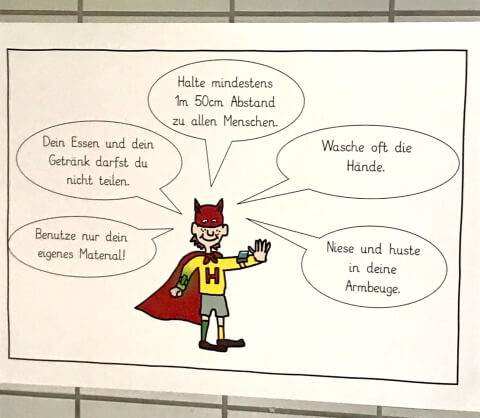 Halte mindestens
1m 50cm Abstand
zu allen Menschen.
Dein Essen und dein
Getränk darfst du
nicht teilen.
Wasche oft die
Hände.
Benutze nur dein
eigenes Material!
Niese und huste
in deine
Armbeuge.
H